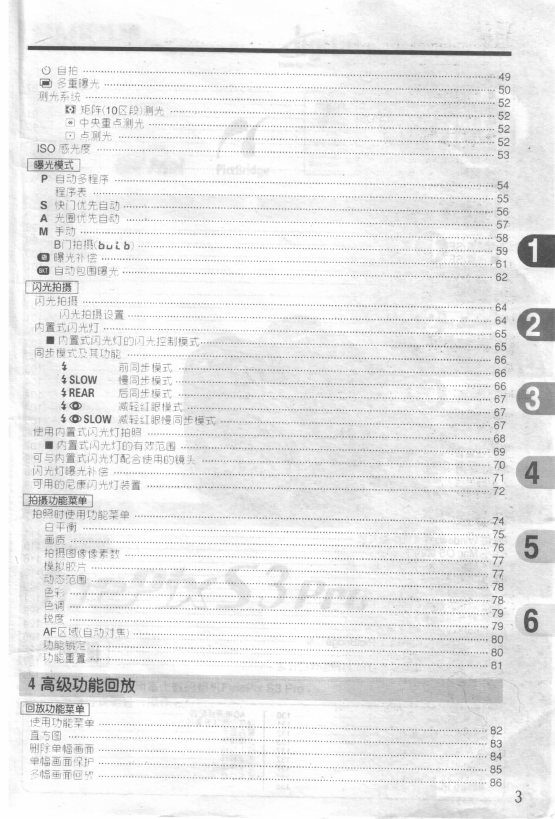 自拍 49
多重曝光 50
测光系统 52
矩阵(10区段)测光 52
中央重点测光 52
点测光 52
ISO 感光度 53
曝光模式
P 自动多程序 54
程序表 55
S 快门优先自动 56
A 光圈优先自动 57
M 手动 58
B门拍摄(bulb) 59
曝光补偿 61
BKT 自动包围曝光 62
闪光拍摄
闪光拍摄 64
闪光拍摄设置 64
内置式闪光灯 65
■ 内置式闪光灯的闪光控制模式 65
同步模式及其功能 66
前同步模式 66
SLOW 慢同步模式 66
REAR 后同步模式 67
减轻红眼模式 67
SLOW 减轻红眼慢同步模式 67
使用内置式闪光灯拍照 68
■ 内置式闪光灯的有效范围 69
可与内置式闪光灯配合使用的镜头 70
闪光灯曝光补偿 71
可用的尼康闪光灯装置 72
拍摄功能菜单
拍照时使用功能菜单 74
白平衡 75
画质 76
拍摄图像像素数 77
模拟胶片 77
动态范围 78
色彩 78
色调 79
锐度 79
AF区域(自动对焦) 80
功能锁定 80
功能重置 81
4 高级功能回放
回放功能菜单
使用功能菜单 82
直方图 83
删除单幅画面 84
单幅画面保护 85
多幅画面回放 86
1
2
3
4
5
6
3